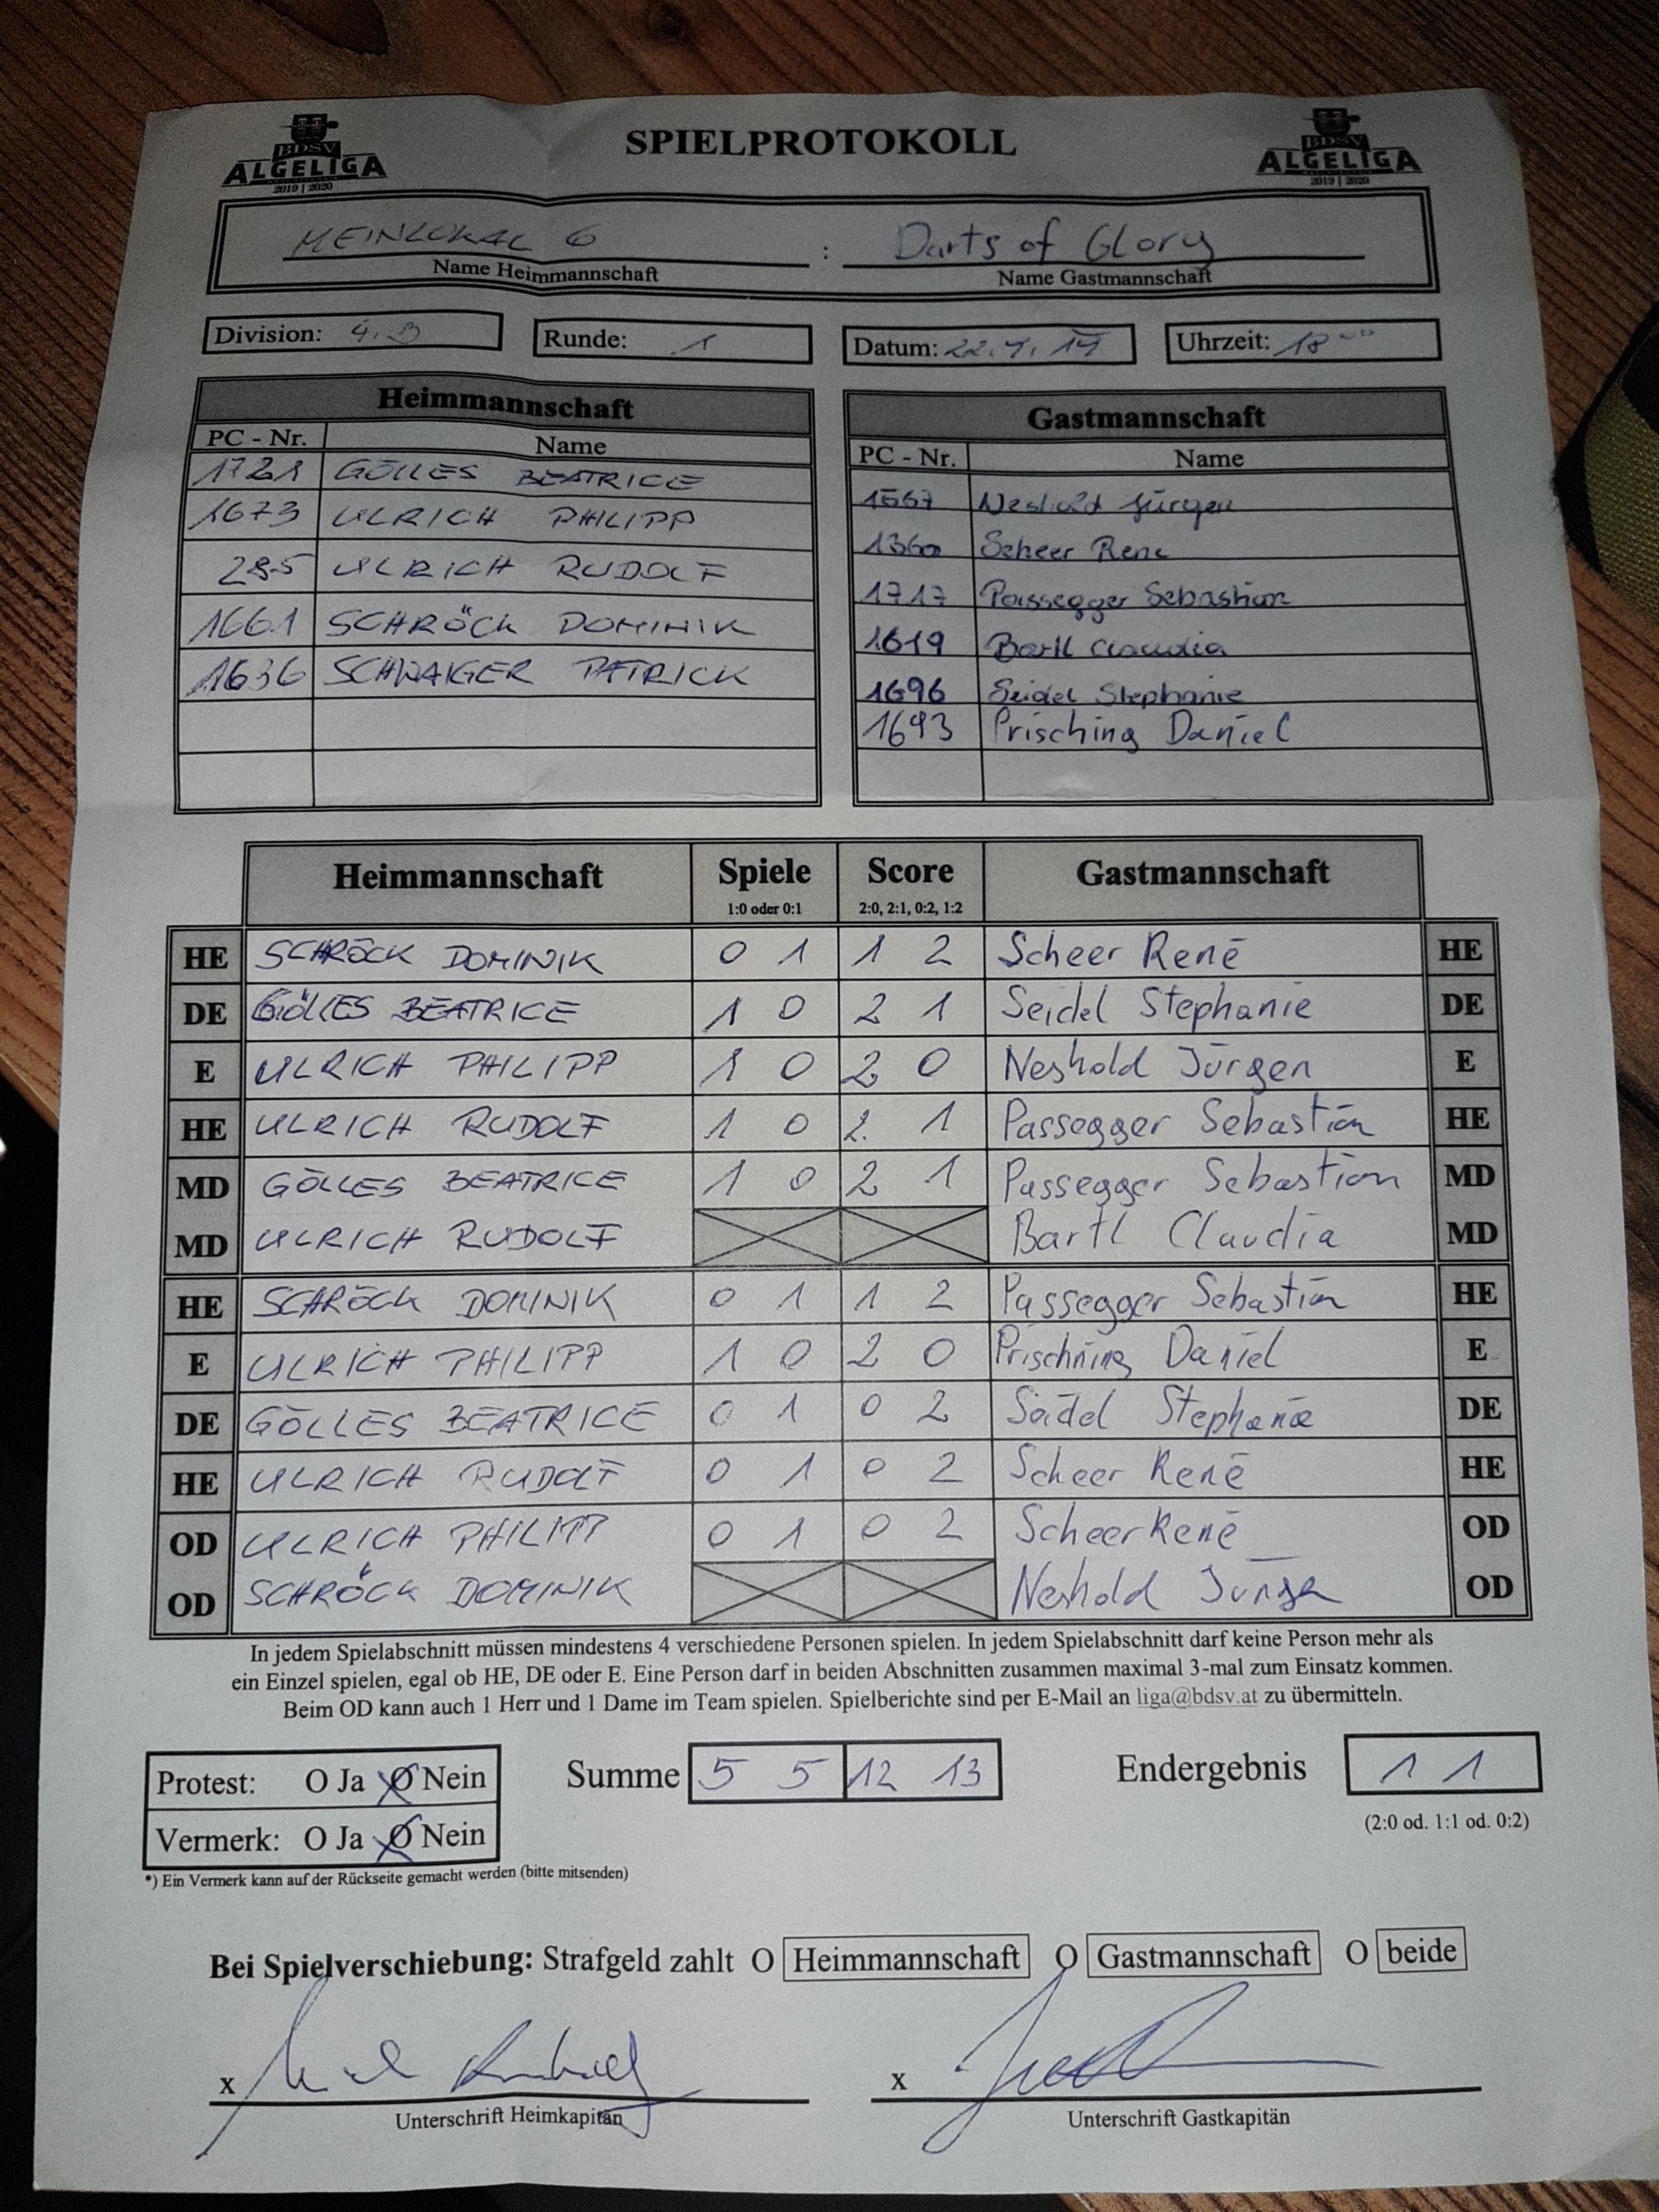 BDSV
ALGELIGA
2019 | 2020
SPIELPROTOKOLL
BDSV
ALGELIGA
2019 | 2020
MEINLOKAL 6 : Darts of Glory
Name Heimmannschaft Name Gastmannschaft
Division: 4. B Runde: 1 Datum: Uhrzeit: 18 00
Heimmannschaft
PC - Nr. Name
1721 GÖLLES BEATRICE
1673 ULRICH PHILIPP
285 ULRICH RUDOLF
1661 SCHRÖCK DOMINIK
1636 SCHWAIGER PATRICK
Gastmannschaft
PC - Nr. Name
1567 Neshold Jürgen
1360 Scheer Rene
1717 Passegger Sebastian
1619 Bartl Claudia
1696 Seidel Stephanie
1693 Prisching Daniel
Heimmannschaft Spiele Score Gastmannschaft
1:0 oder 0:1 2:0, 2:1, 0:2, 1:2
HE SCHRÖCK DOMINIK 0 1 1 2 Scheer René HE
DE GÖLLES BEATRICE 1 0 2 1 Seidel Stephanie DE
E ULRICH PHILIPP 1 0 2 0 Neshold Jürgen E
HE ULRICH RUDOLF 1 0 2 1 Passegger Sebastian HE
MD GÖLLES BEATRICE 1 0 2 1 Passegger Sebastian MD
MD ULRICH RUDOLF Bartl Claudia MD
HE SCHRÖCK DOMINIK 0 1 1 2 Passegger Sebastian HE
E ULRICH PHILIPP 1 0 2 0 Prisching Daniel E
DE GÖLLES BEATRICE 0 1 0 2 Seidel Stephanie DE
HE ULRICH RUDOLF 0 1 0 2 Scheer René HE
OD ULRICH PHILIPP 0 1 0 2 Scheer René OD
OD SCHRÖCK DOMINIK Neshold Jürgen OD
In jedem Spielabschnitt müssen mindestens 4 verschiedene Personen spielen. In jedem Spielabschnitt darf keine Person mehr als
ein Einzel spielen, egal ob HE, DE oder E. Eine Person darf in beiden Abschnitten zusammen maximal 3-mal zum Einsatz kommen.
Beim OD kann auch 1 Herr und 1 Dame im Team spielen. Spielberichte sind per E-Mail an liga@bdsv.at zu übermitteln.
Protest: O Ja O Nein Summe 5 5 12 13 Endergebnis 1 1
Vermerk: O Ja O Nein (2:0 od. 1:1 od. 0:2)
*) Ein Vermerk kann auf der Rückseite gemacht werden (bitte mitsenden)
Bei Spielverschiebung: Strafgeld zahlt O Heimmannschaft O Gastmannschaft O beide
x x
Unterschrift Heimkapitän Unterschrift Gastkapitän